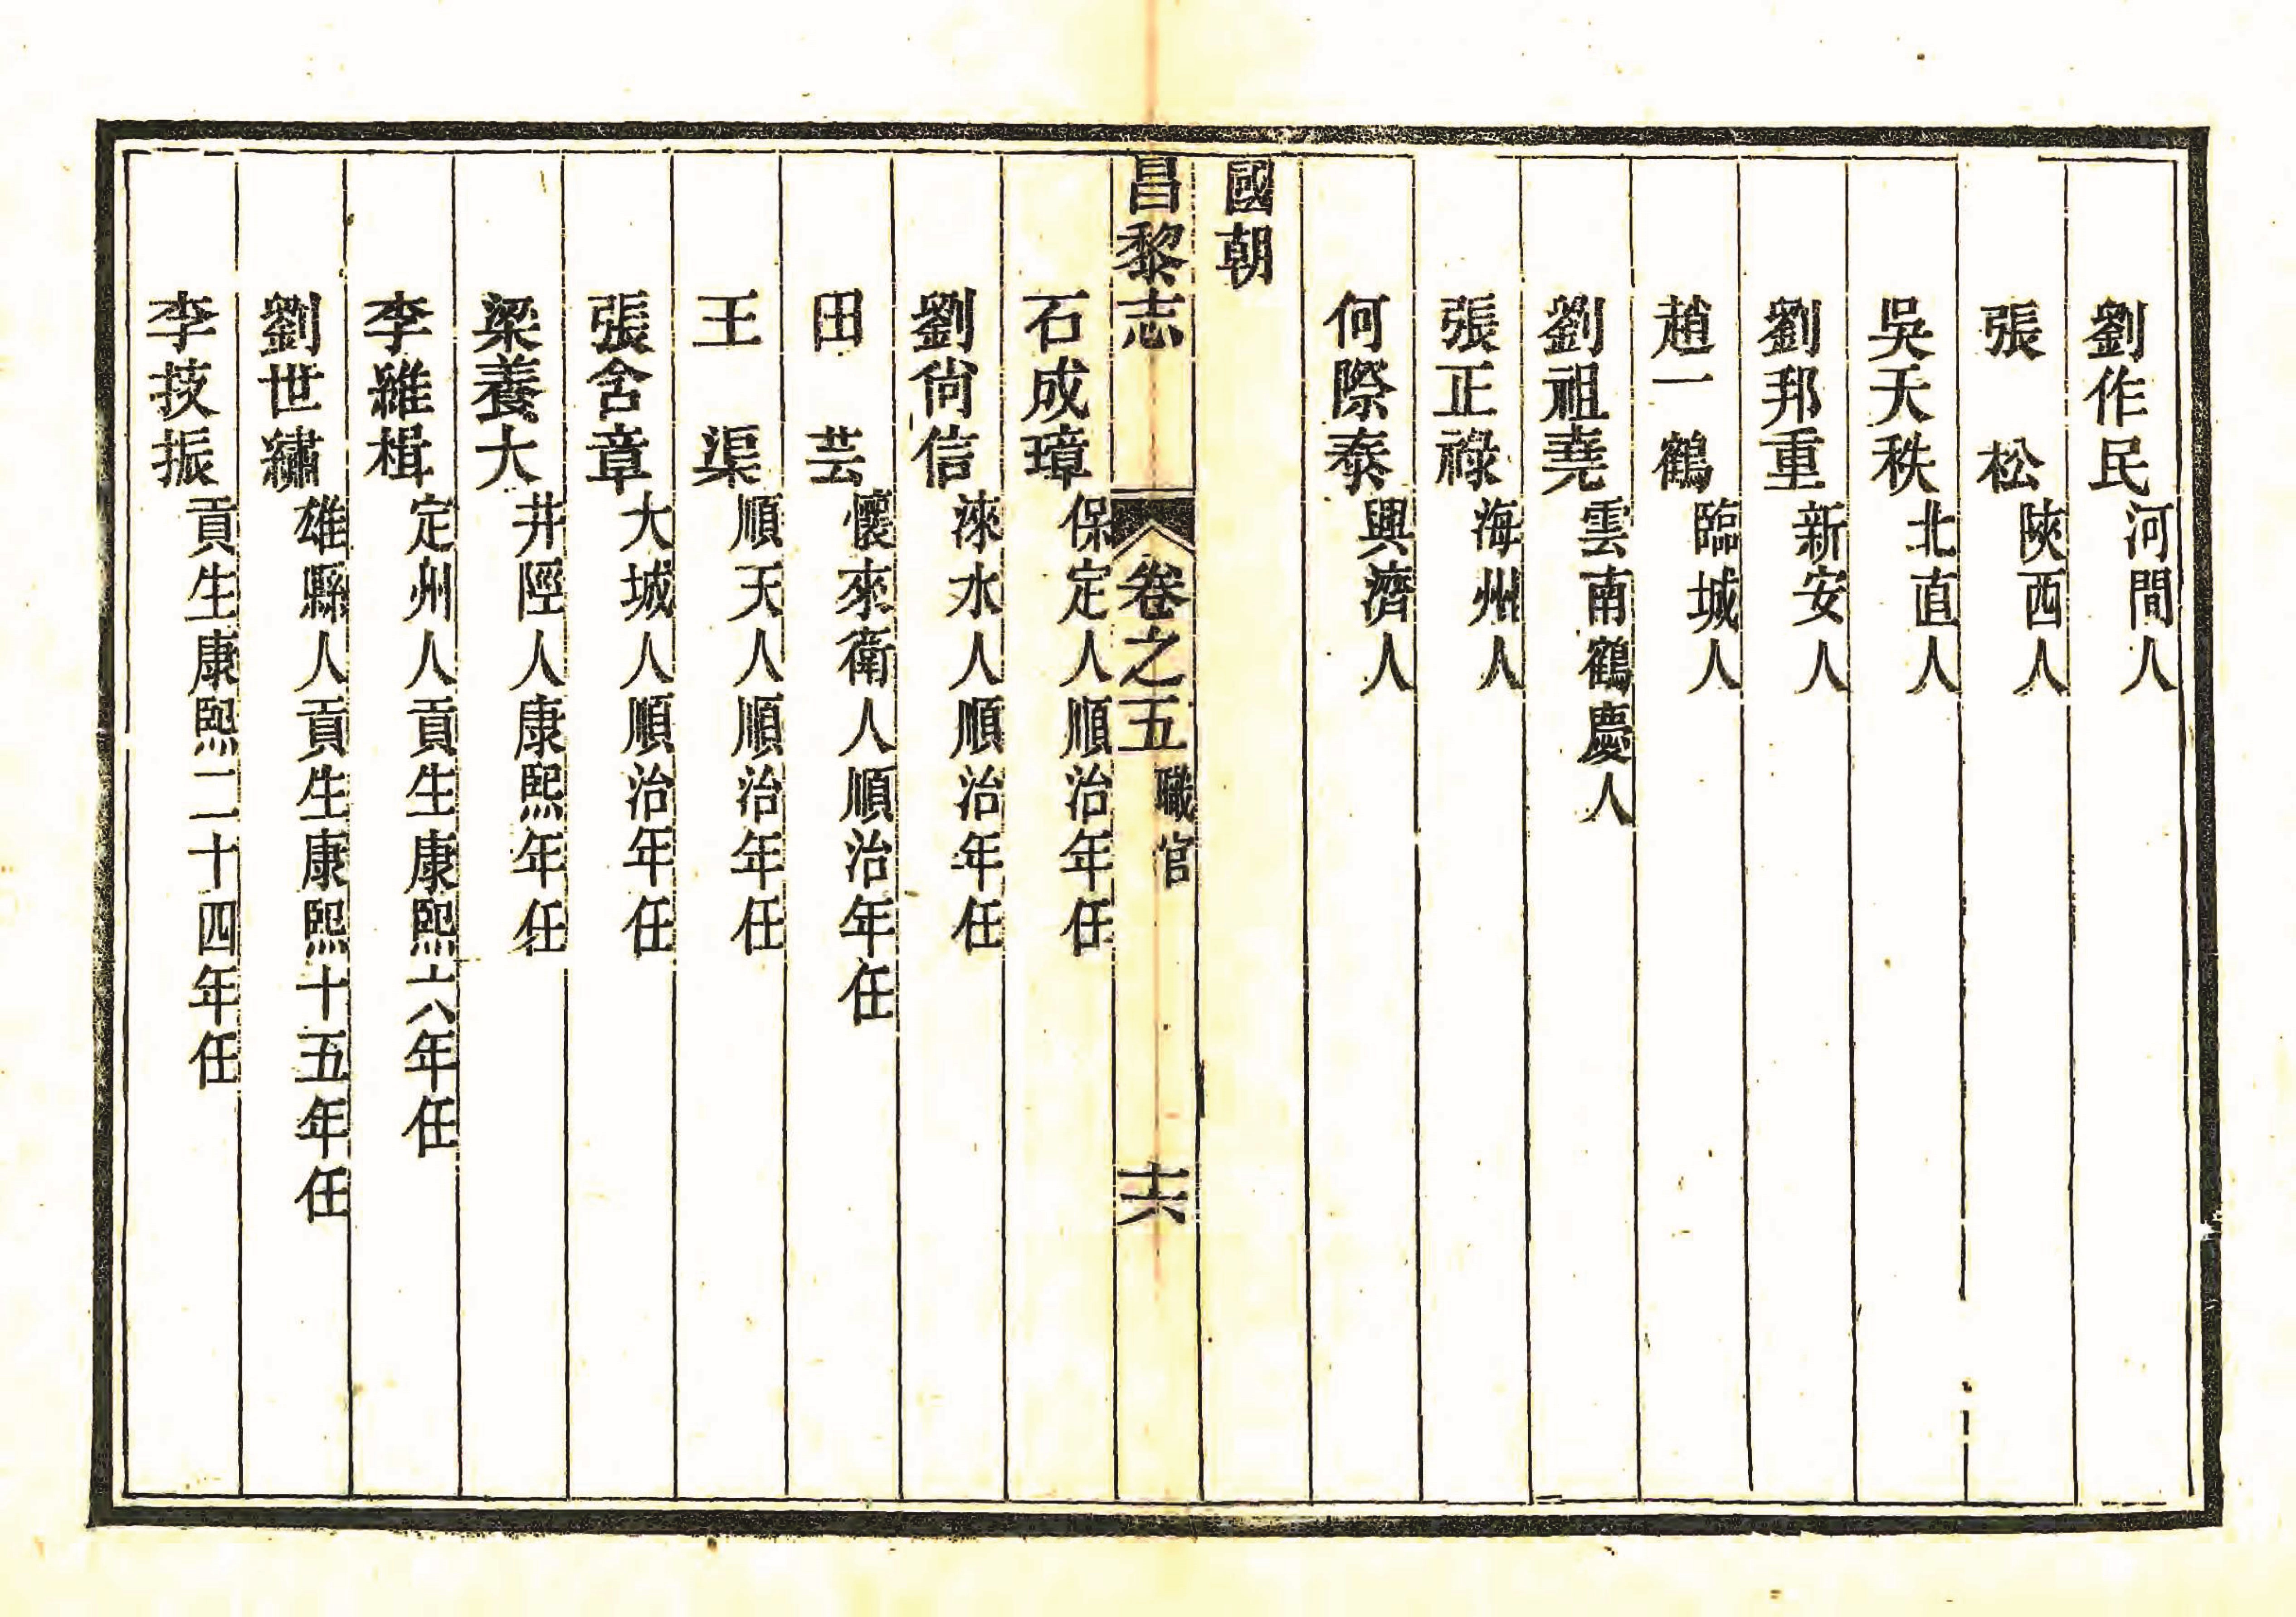 劉作民河間人
張松陝西人
吳天秩北直人
劉邦重新安人
趙一鶴臨城人
劉祖堯雲南鶴慶人
張正祿海州人
何際泰興濟人
國朝
昌黎志 卷之五 職官 十六
石成璋保定人順治年任
劉尙信淶水人順治年任
田芸懷來衛人順治年任
王渠順天人順治年任
張含章大城人順治年任
梁養大井陘人康熙年任
李維楫定州人貢生康熙十六年任
劉世繡雄縣人貢生康熙十五年任
李技振貢生康熙二十四年任